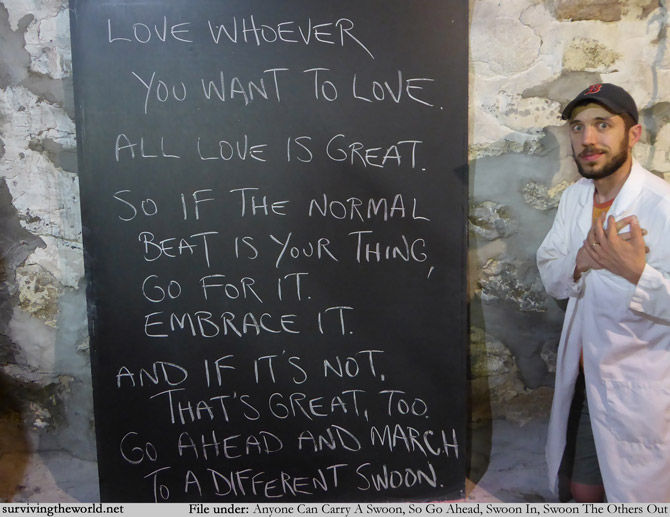 LOVE WHOEVER
YOU WANT TO LOVE.
ALL LOVE IS GREAT.
SO IF THE NORMAL
BEAT IS YOUR THING,
GO FOR IT.
EMBRACE IT.
AND IF IT'S NOT,
THAT'S GREAT, TOO.
GO AHEAD AND MARCH
TO A DIFFERENT SWOON.
survivingtheworld.net File under: Anyone Can Carry A Swoon, So Go Ahead, Swoon In, Swoon The Others Out
B